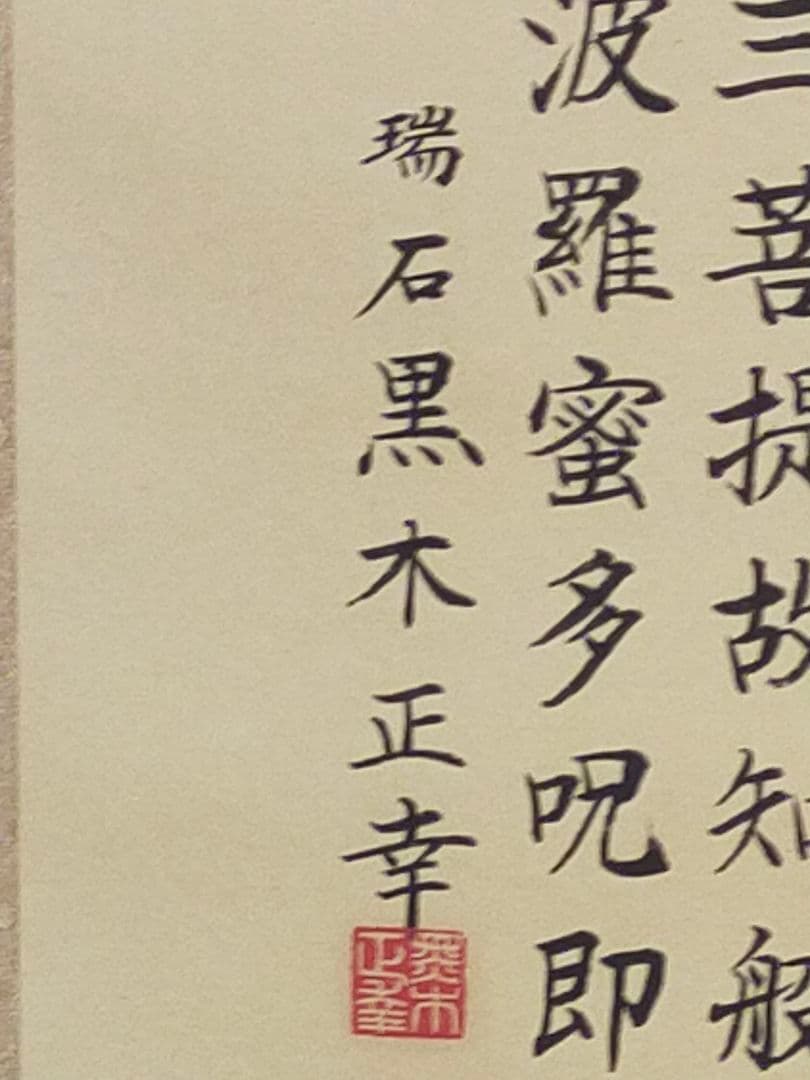 三菩提故知般
波羅蜜多呪即
瑞石黒木正幸
黒木正幸